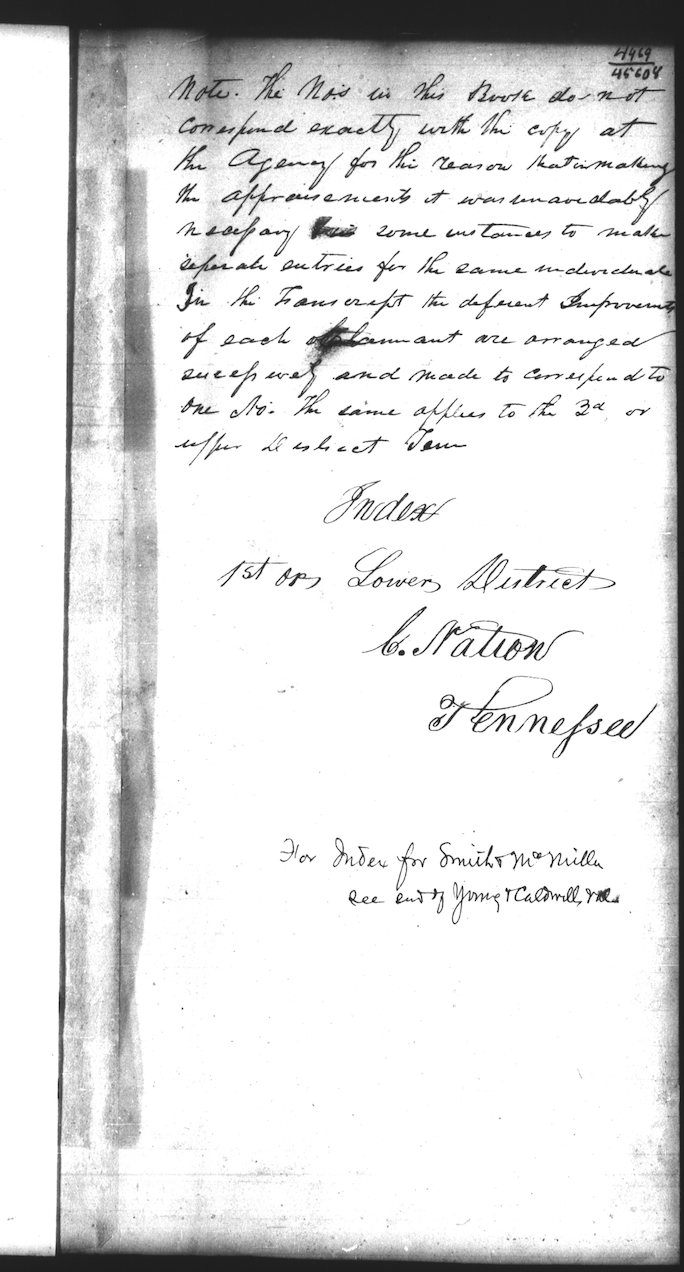 4469
45604
Note. The Nos in this Book do not
correspond exactly with the copy at
the Agency for this reason that in making
the appraisements it was unavoidably
necessary in some instances to make
seperate entries for the same individuals
In the Transcript the deferent Improvements
of each claimant are arranged
successively and made to correspond to
one No. The same applies to the 3d or
upper District Tenn
Index
1st or Lower District
C. Nation
Tennessee
For Index for Smith & McMillan
see end of Young & Caldwell,